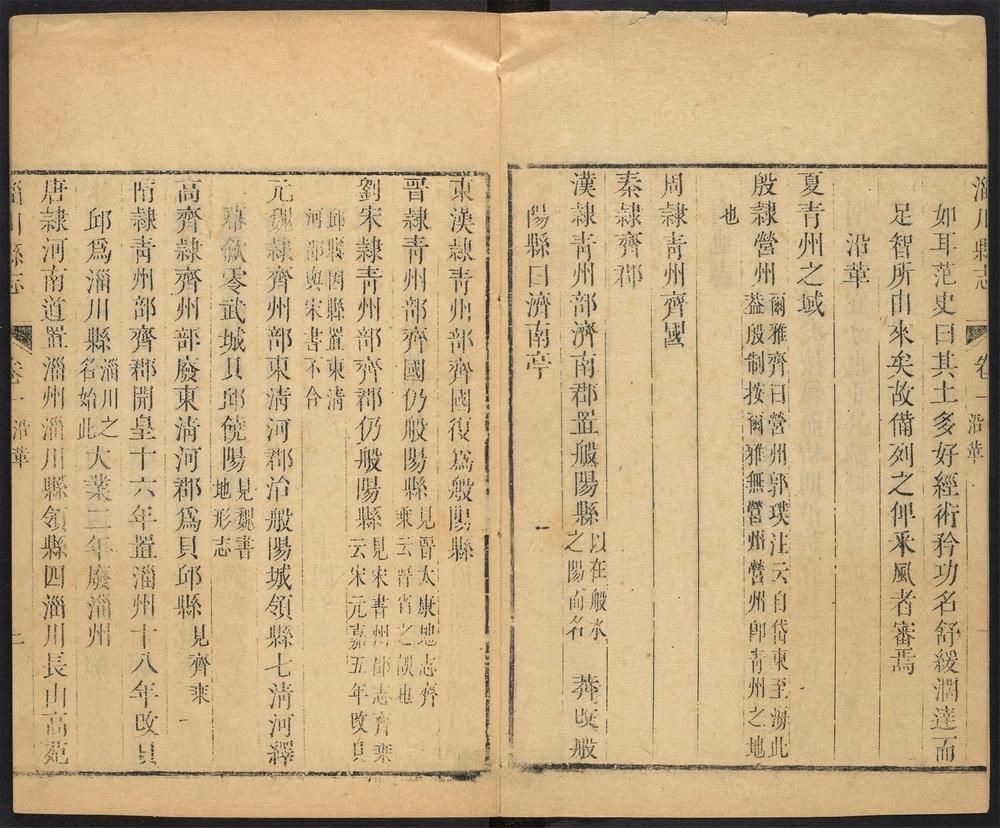 淄川縣志 卷一 沿革 一
如耳范史曰其土多好經術矜功名舒緩濶達而
足智所由來矣故備列之俾釆風者審焉
沿革
夏青州之域
殷隸營州爾雅齊曰營州郭璞注云自岱東至海此
葢殷制按爾雅無青州營州卽青州之地
也
周隸青州齊國
秦隸齊郡
漢隸青州部濟南郡置般陽縣以在般水
之陽而名 莽改般
陽縣曰濟南亭
東漢隸青州部齊國復爲般陽縣
晉隸青州部齊國仍般陽縣見晉太康地志齊
乘云晉省之誤也
劉宋隸青州部齊郡仍般陽縣見宋書州郡志齊乘
云宋元嘉五年改貝
邱縣因縣置東清
河郡與宋書不合
元魏隸齊州部東清河郡治般陽城領縣七清河繹
幕鄃零武城貝邱饒陽見魏書
地形志
高齊隸齊州部廢東清河郡爲貝邱縣見齊乘
隋隸青州部齊郡開皇十六年置淄州十八年改貝
邱爲淄川縣淄川之
名始此大業二年廢淄州
唐隸河南道置淄州淄川縣領縣四淄川長山高苑
淄川縣志 卷一 沿革 二